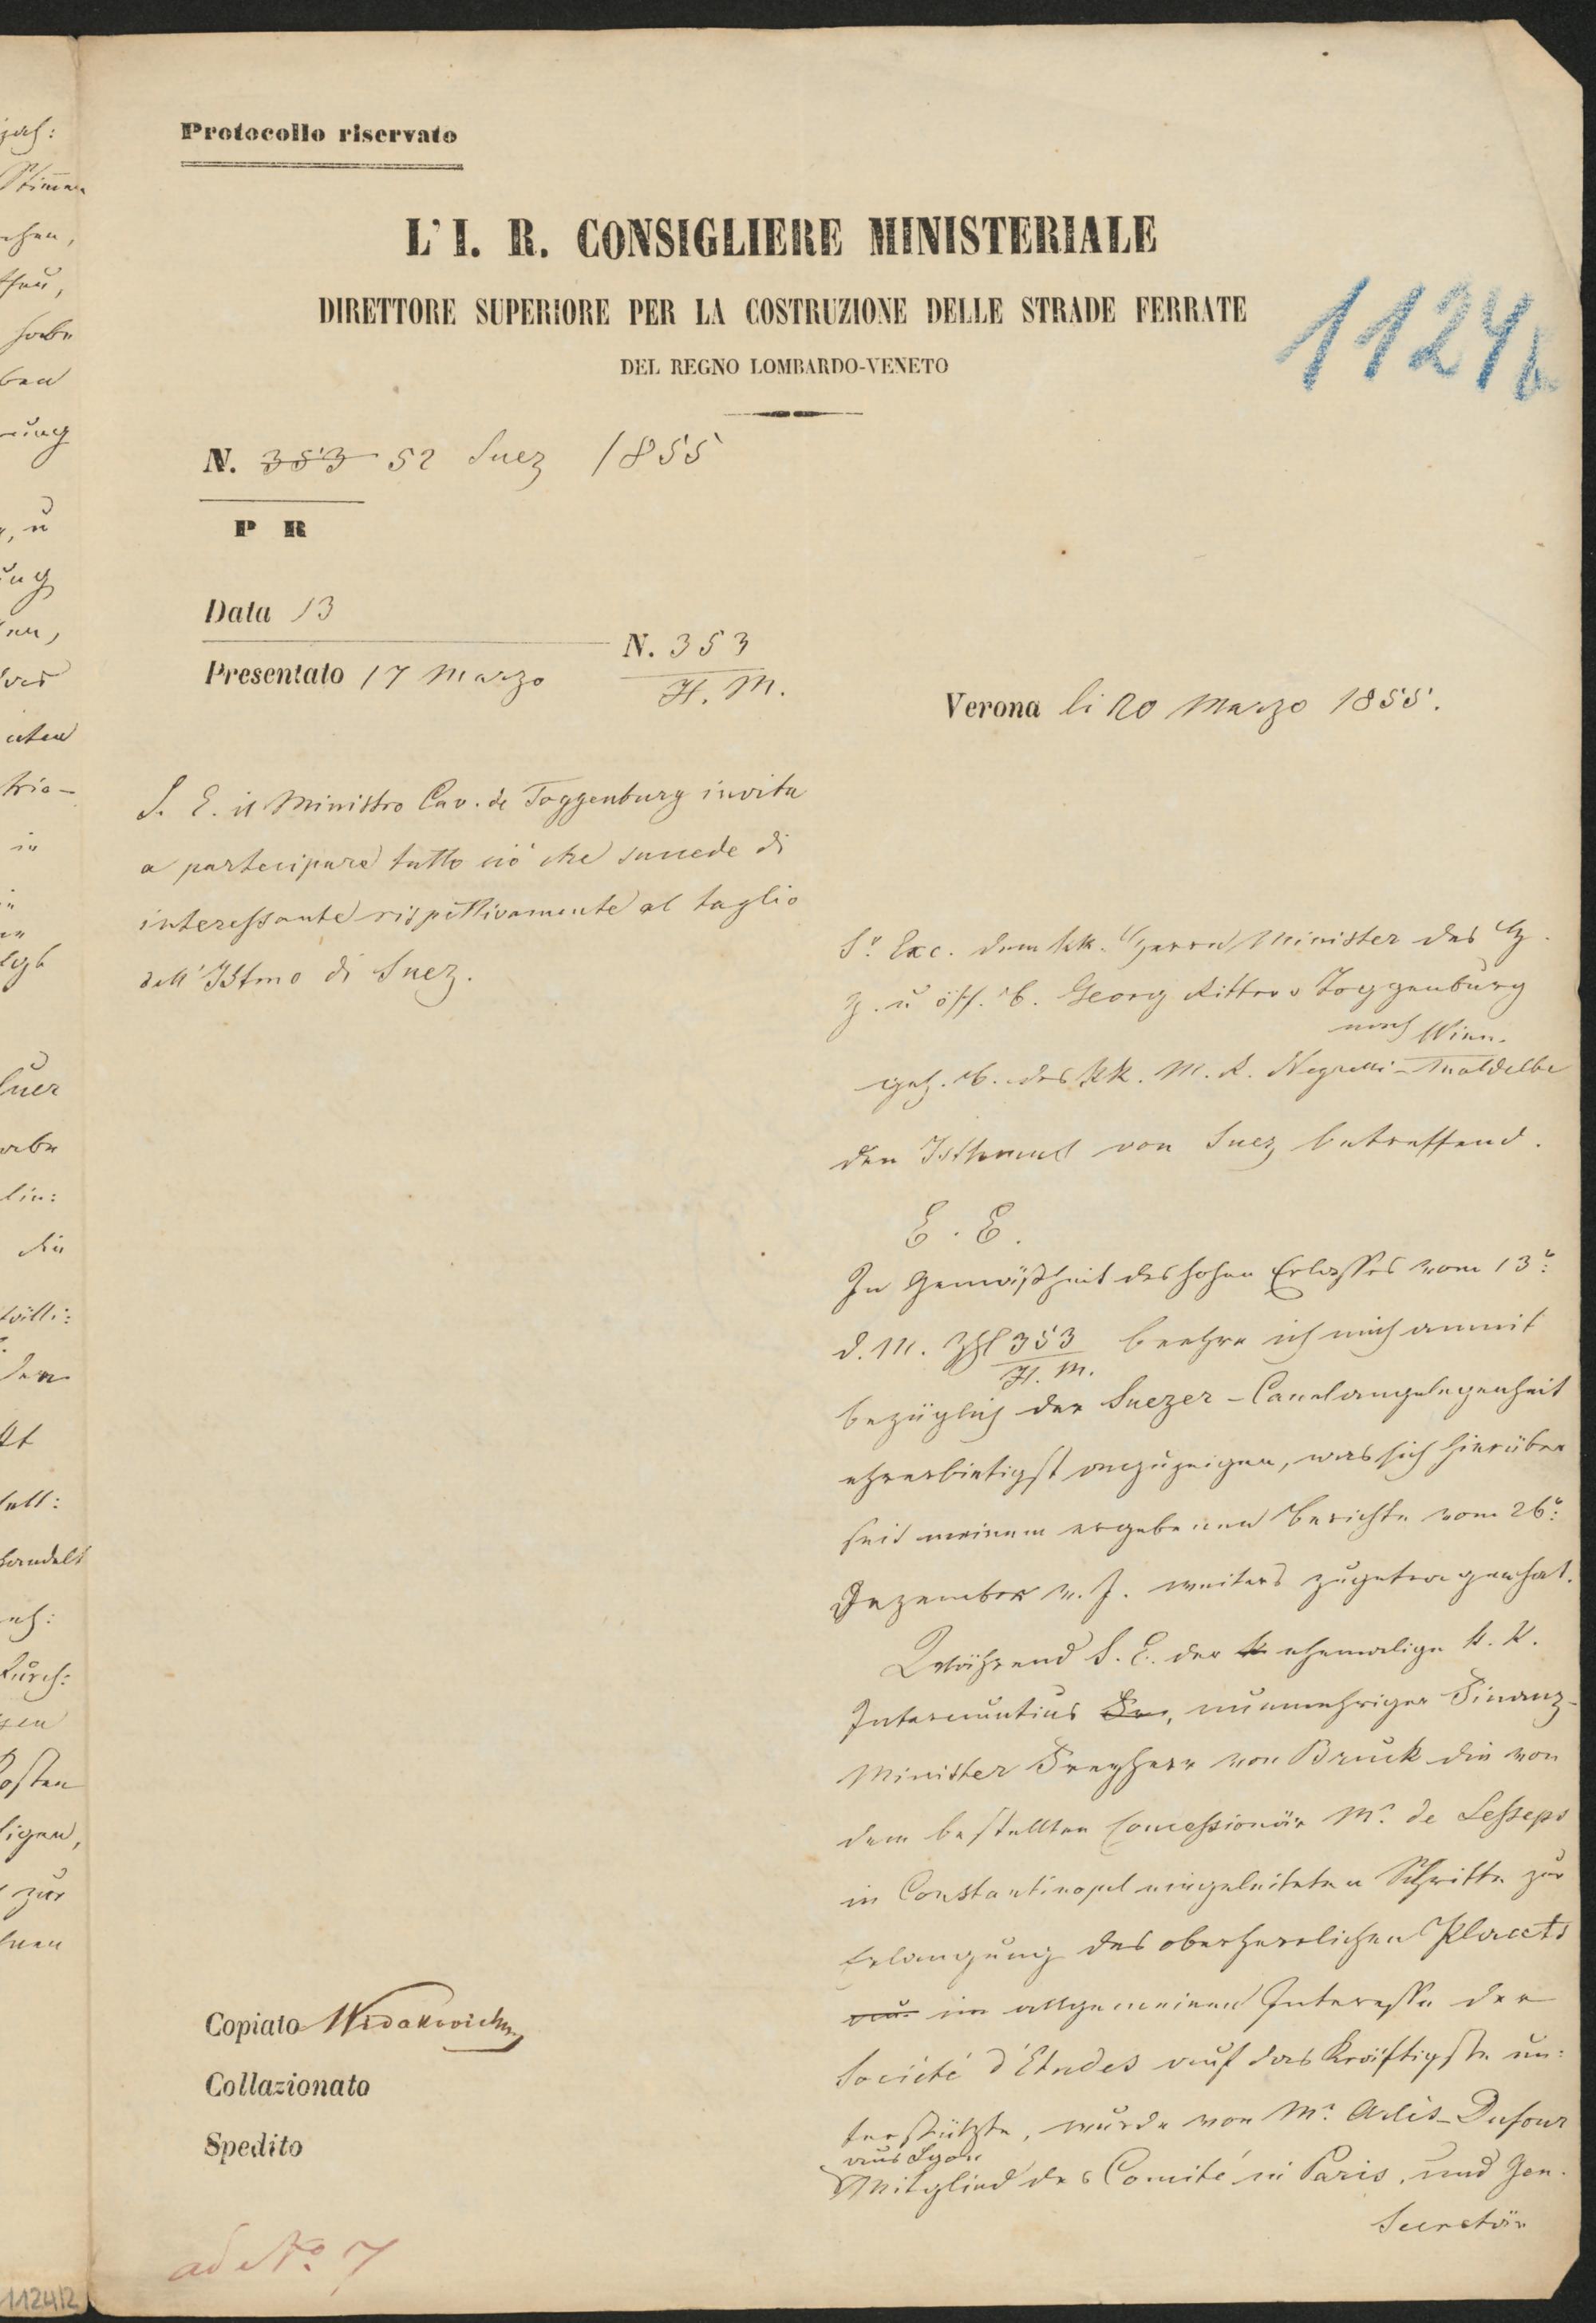 Protocollo riservato
L' I. R. CONSIGLIERE MINISTERIALE
DIRETTORE SUPERIORE PER LA COSTRUZIONE DELLE STRADE FERRATE
DEL REGNO LOMBARDO-VENETO
1124b
N. 353 52 Suez 1855
P R
Data 13
N. 353
H. M.
Presentato 17 Marzo
Verona li 20 Marzo 1855.
S. E. il Ministro Cav. de Toggenburg invita
a partecipare tutto ciò che succede di
interessante rispettivamente al taglio
dell' Istmo di Suez.
Sr. Exc. dem kk. Herrn Minister des H.
G. u öff. B. Georg Ritter v Toggenburg
nach Wien.
geh. B. des kk. M. R. Negrelli-Moldelbe
den Isthmus von Suez betreffend.
E. E.
In Gemäßheit des hohen Erlasses vom 13t:
d. M. Zhl 353
H. M.
beehre ich mich anmit
bezüglich der Suezer-Canalangelegenheit
ehrerbietigst anzuzeigen, was sich hierüber
seit meinem ergebenen Berichte vom 26t:
Dezember v. J. weiters zugetragen hat.
Während S. E. der ehemalige k. k.
Internuntius, nunmehriger Finanz-
Minister Freyherr von Bruck die von
dem bestellten Concessionär Mr. de Lesseps
in Constantinopel eingeleiteten Schritte zur
Erlangung des oberherrlichen Placets
im allgemeinen Interesse der
Société d'Etudes auf das Kräftigste un:
terstützte, wurde von Mr. Arlès-Dufour
aus Lyon
Mitglied des Comité in Paris, und Gen.
Secretär
Copiato Widakovich
Collazionato
Spedito
ad No. 7
1124/2